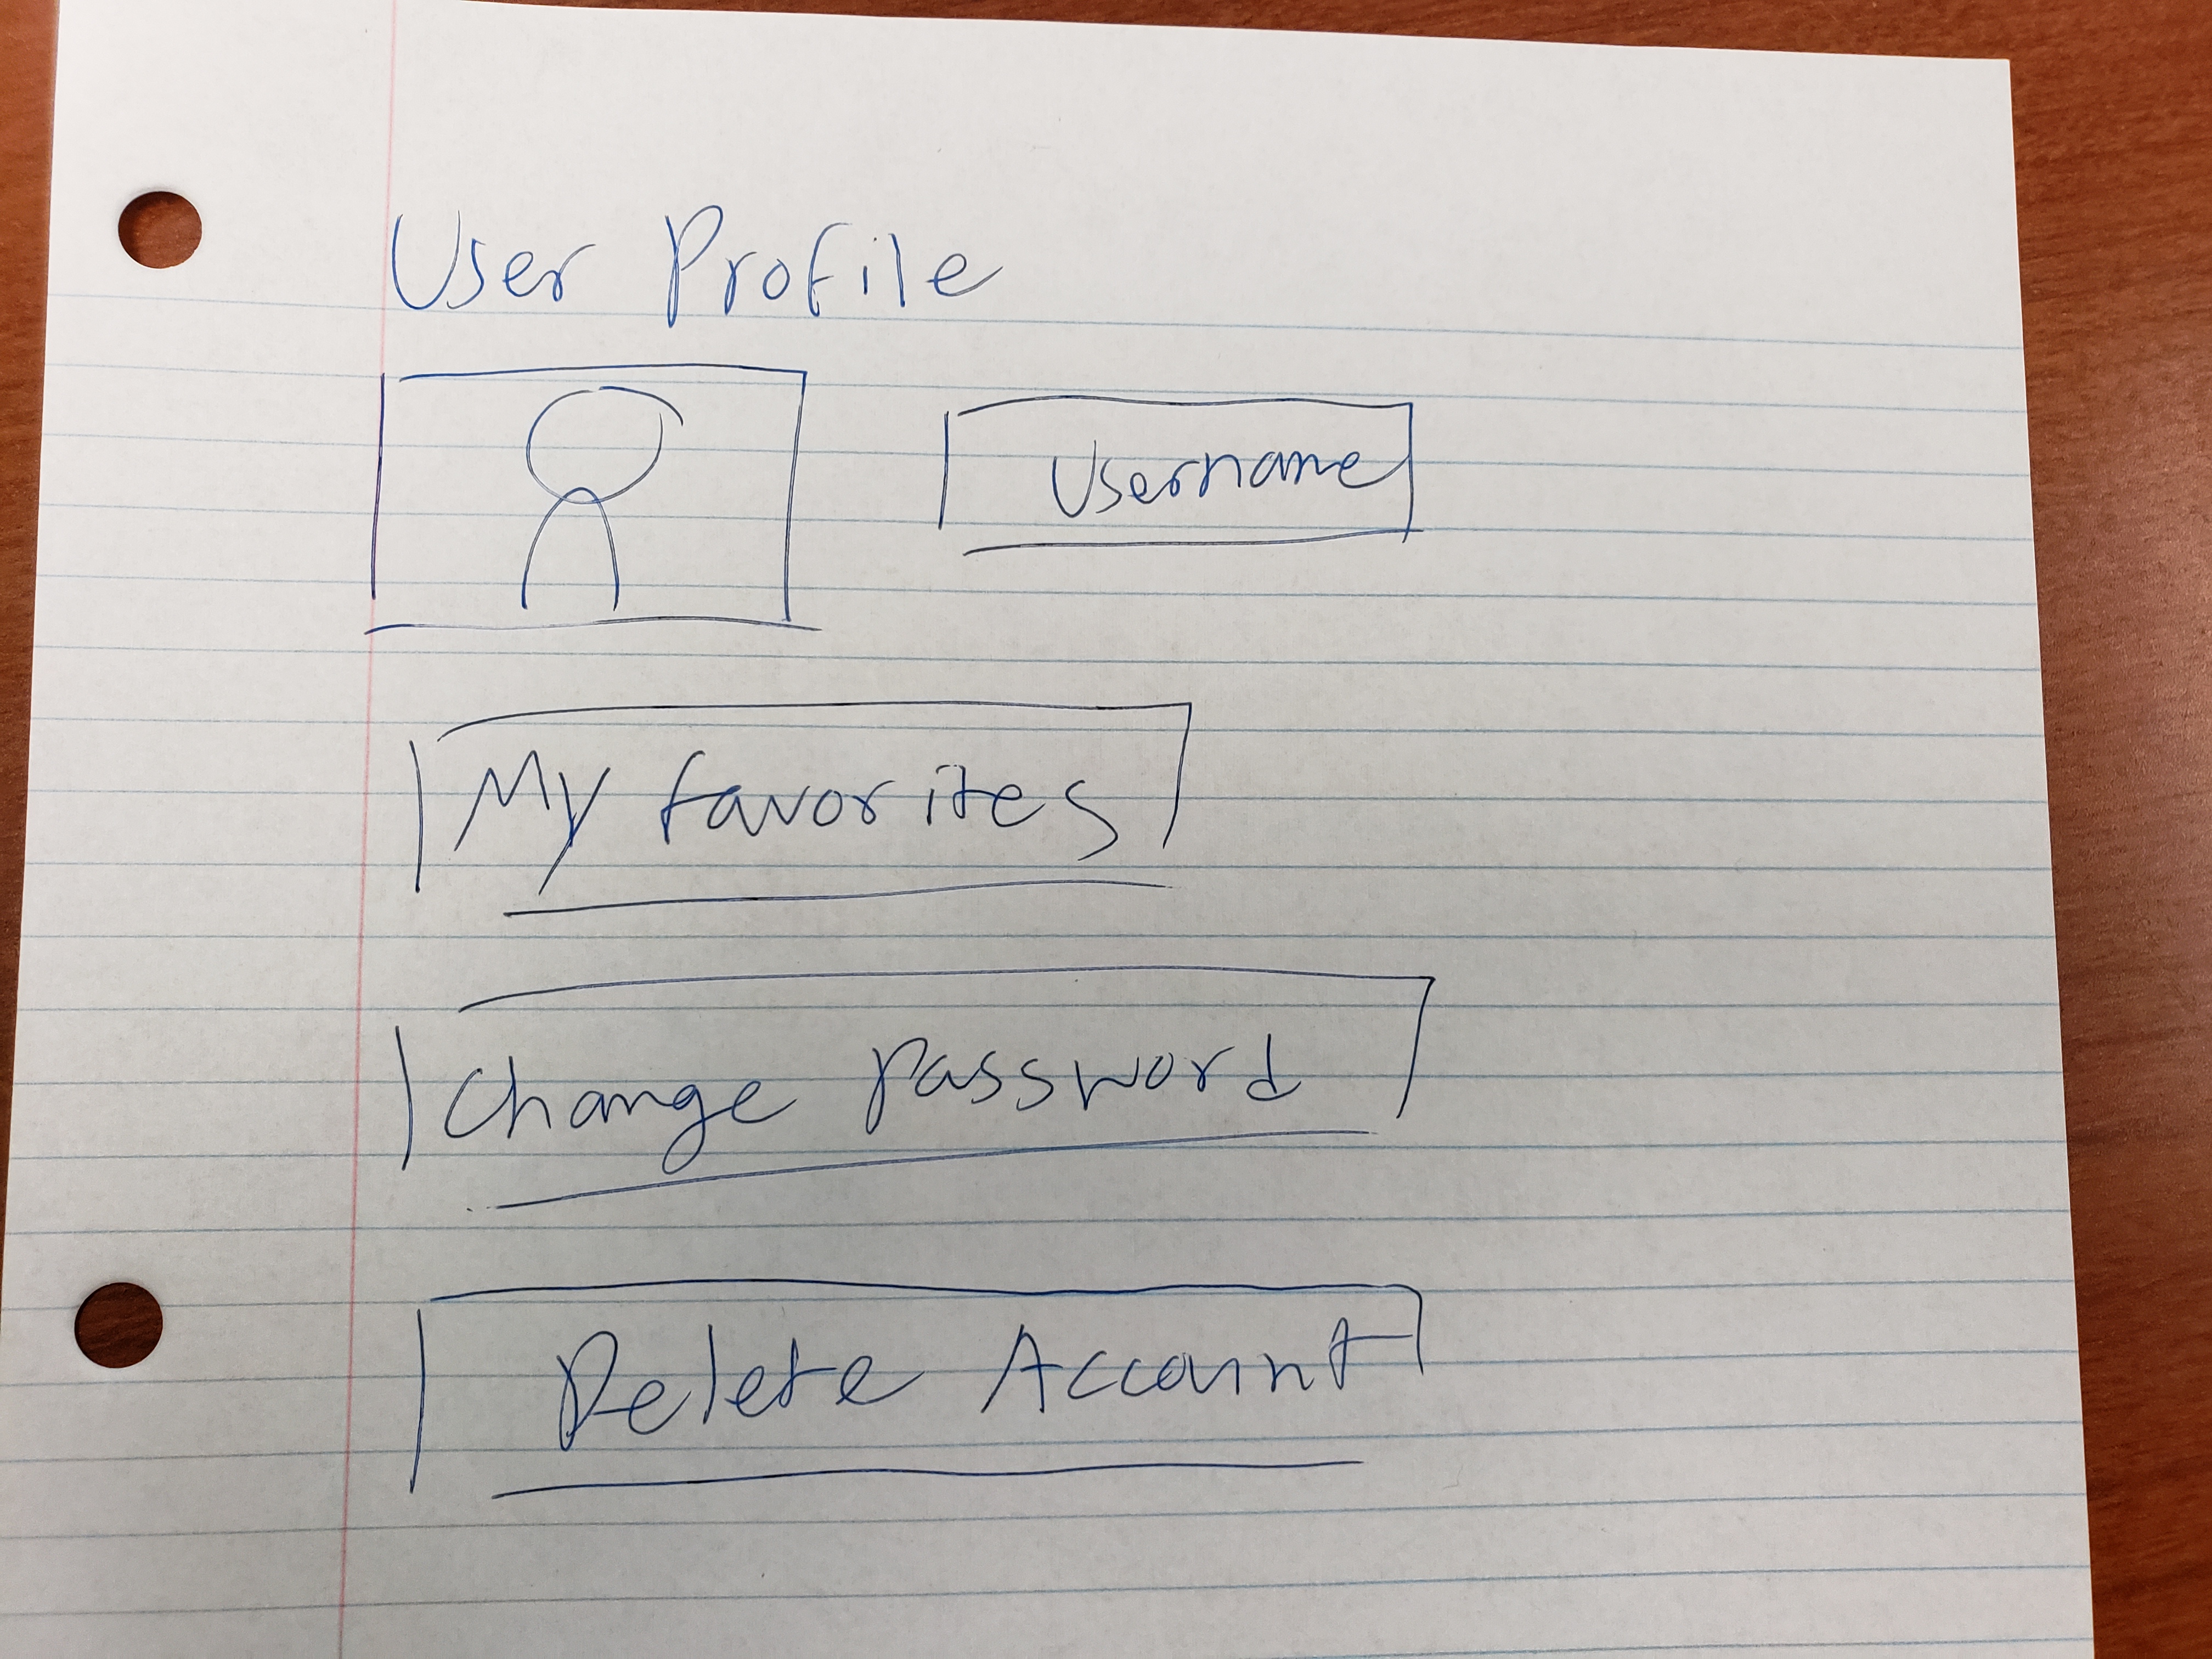 User Profile
Username
My favorites
Change password
Delete Account